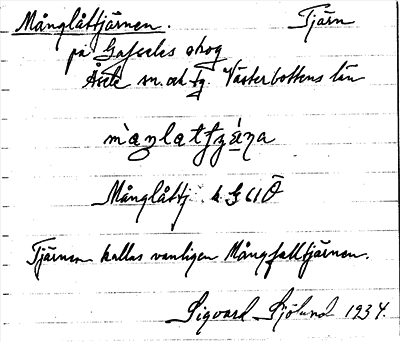 Månglåttjärnen. Tjärn
på Gafsele skog
Åsele sn. och tg. Västerbottens län
Månglåttj. k. G 61 Ö
Tjärnen kallas vanligen Mångfalltjärnen.
Sigvard Sjölund 1934.